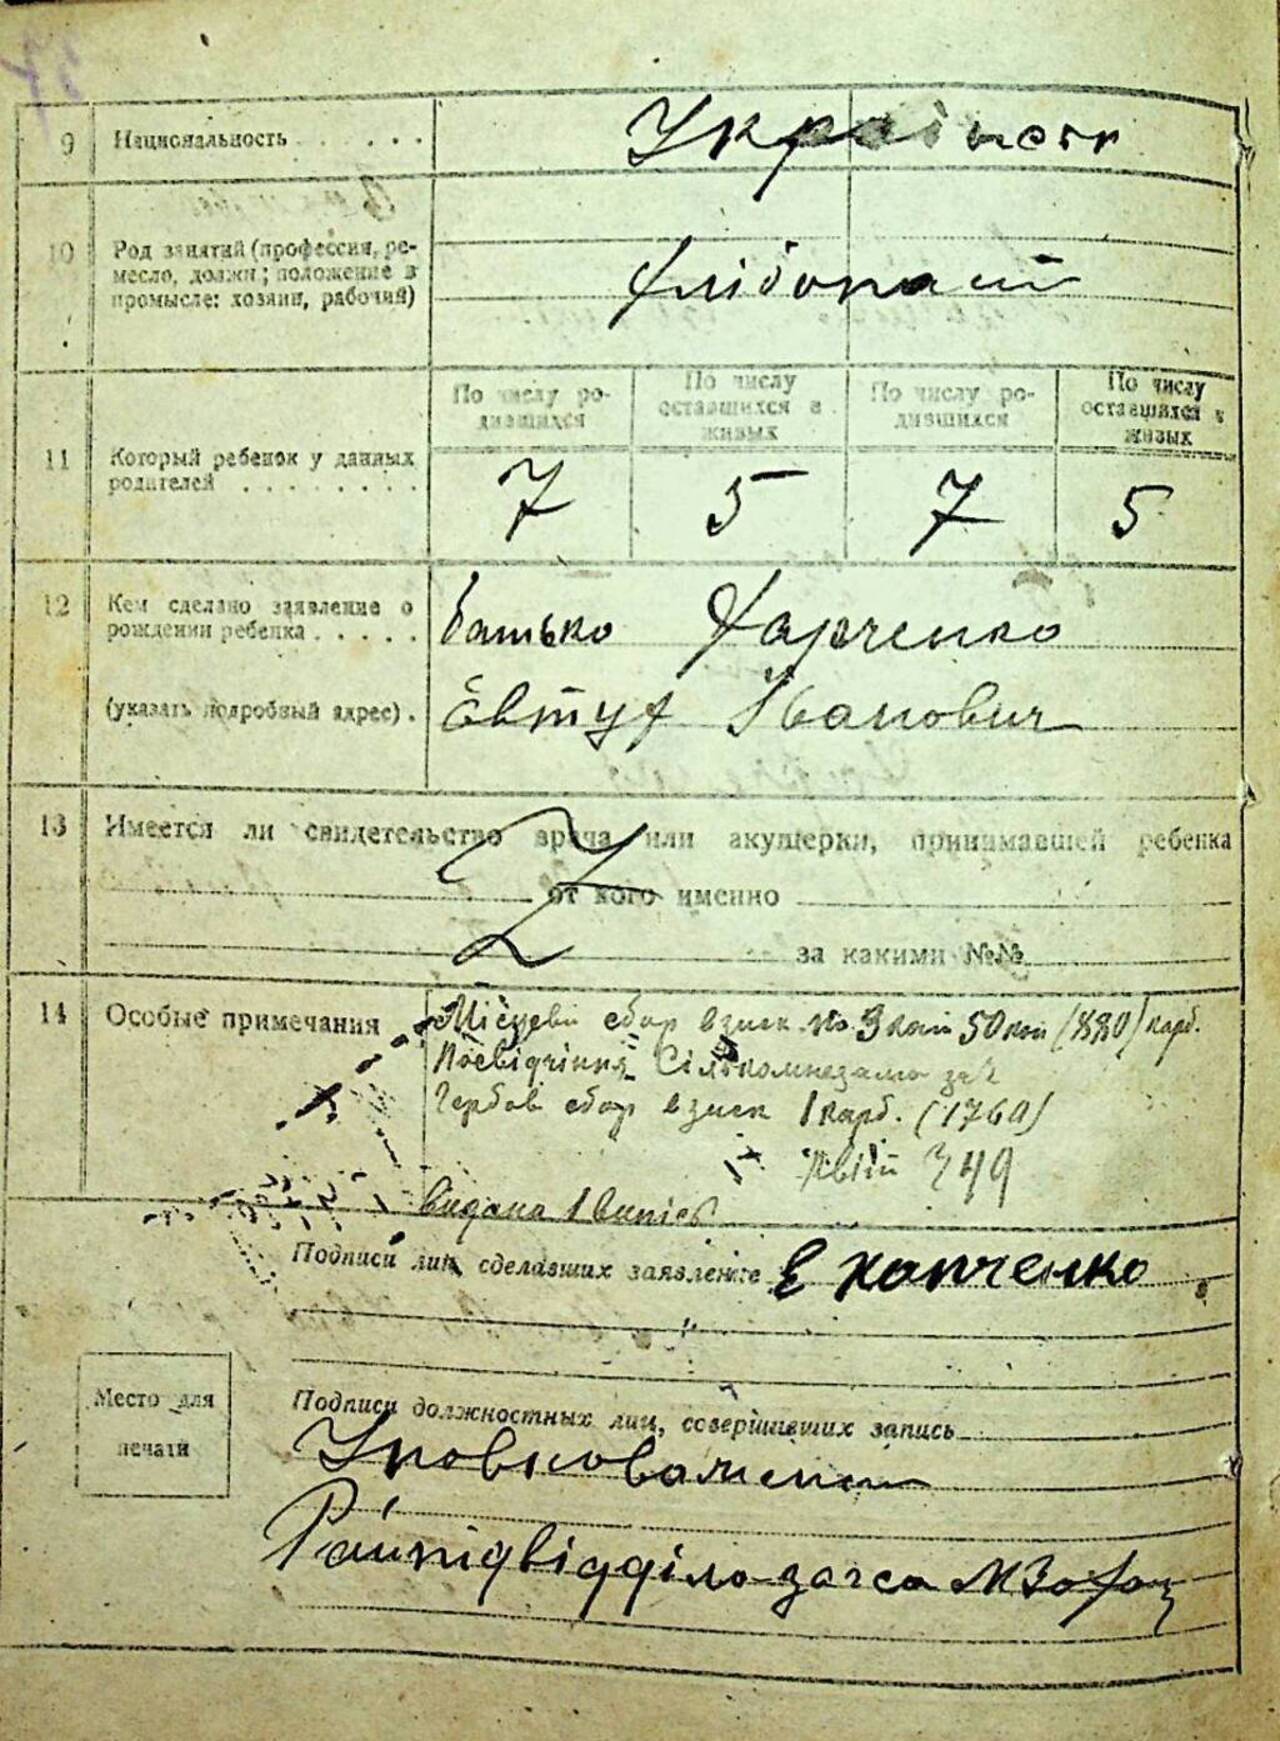 37
9 Национальность . . . . . Українськ
10 Род занятий (профессия, ре-
месло, должн; положение в
промысле: хозяин, рабочий)
Хлібопаш
По числу ро-
дившихся
По числу
оставшихся в
живых
По числу ро-
дившихся
По числу
оставшихся в
живых
11 Который ребенок у данных
родителей . . . . . . . .
7 5 7 5
12 Кем сделано заявление о
рождении ребенка . . . . .
батько Харченко
(указать подробный адрес) . Євтух Іванович
13 Имеется ли свидетельство врача или акушерки, принимавшей ребенка
от кого именно
за какими №№
14 Особые примечания
Місцевий сбор взиск. по 3 50 коп (880) карб.
Посвідчіння Сількомнезаму за
Гербов сбор взиск 1 карб. (1760)
Квіт 349
видана 1 випис
Подписи лиц, сделавших заявление Е Харченко
"
Место для
печати
Подписи должностных лиц, совершивших запись
Уповноважений
Райпідвідділо загса